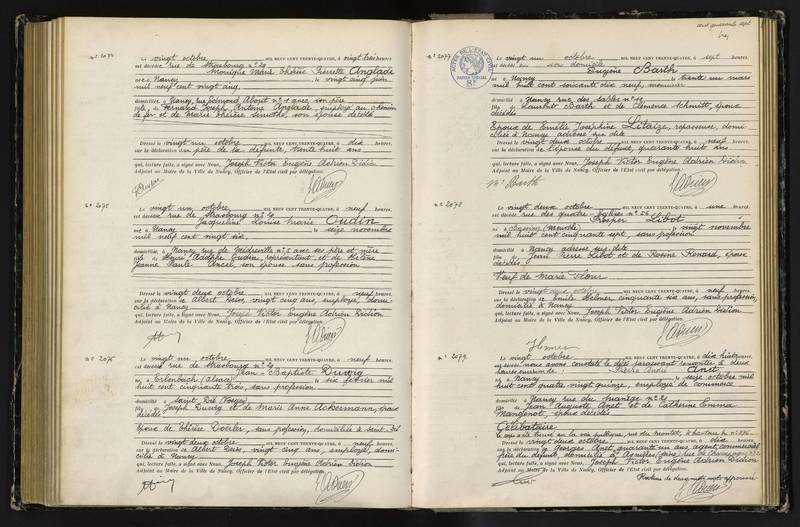 N° 2074
Le vingt octobre MIL NEUF CENT TRENTE-QUATRE, à vingt trois heures,
est décédée rue de Strasbourg n° 29
Monique Marie Thérèse Pierrette Anglade
née à Nancy le vingt cinq juin
mil neuf cent vingt cinq,
domiciliée à Nancy, rue Edmond About n° 1 avec son père
fille de Fernand Joseph Antoine Anglade, employé au chemin
de fer et de Marie Thérèse son épouse décédée
Dressé le vingt un octobre MIL NEUF CENT TRENTE-QUATRE, à dix heures,
sur la déclaration du père de la défunte, trente huit ans
qui, lecture faite, a signé avec Nous, Joseph Victor Eugène Adrien Didion
Adjoint au Maire de la Ville de Nancy, Officier de l'Etat civil par délégation.
N° 2075
Le vingt un octobre MIL NEUF CENT TRENTE-QUATRE, à neuf heures,
est décédée rue de Strasbourg n° 29
Jacqueline Louise Marie Oudin
née à Nancy le seize novembre
mil neuf cent vingt six,
domiciliée à Nancy rue de n° 5 avec ses père et mère
fille de Henri Adolphe Oudin, représentant et de Hélène
Jeanne Paule Ancel son épouse sans profession
Dressé le vingt deux octobre MIL NEUF CENT TRENTE-QUATRE, à neuf heures,
sur la déclaration de Albert vingt cinq ans, employé, domi-
cilié à Nancy
qui, lecture faite, a signé avec Nous, Joseph Victor Eugène Adrien Didion
Adjoint au Maire de la Ville de Nancy, Officier de l'Etat civil par délégation.
N° 2076
Le vingt un octobre MIL NEUF CENT TRENTE-QUATRE, à neuf heures,
est décédé rue de Strasbourg n° 29
Jean-Baptiste Durvig
né à Erlenbach (Alsace) le six février mil
huit cent cinquante trois, sans profession
domicilié à Saint Dié (Vosges)
fils de Joseph Durvig et de Marie Anne Ackermann, époux
décédés
Epoux de Thérèse sans profession, domiciliée à Saint-Dié
Dressé le vingt deux octobre MIL NEUF CENT TRENTE-QUATRE, à neuf heures,
sur la déclaration de Albert vingt cinq ans, employé, domi-
cilié à Nancy
qui, lecture faite, a signé avec Nous, Joseph Victor Eugène Adrien Didion
Adjoint au Maire de la Ville de Nancy, Officier de l'Etat civil par délégation.
N° 2077
Le vingt un octobre MIL NEUF CENT TRENTE-QUATRE, à sept heures,
est décédé en son domicile
Eugène Barth
né à Nancy le trente un mars
mil huit cent soixante dix neuf, menuisier
domicilié à Nancy rue des Sables n° 12
fils de Laurent Barth et de Clémence Schmitt, époux
décédés
Epoux de Emélie Joséphine Litaize, repasseuse, domi-
ciliée à Nancy adresse sus dite
Dressé le vingt deux octobre MIL NEUF CENT TRENTE-QUATRE, à neuf heures,
sur la déclaration de l'épouse du défunt, quarante huit ans
qui, lecture faite, a signé avec Nous, Joseph Victor Eugène Adrien Didion
Adjoint au Maire de la Ville de Nancy, Officier de l'Etat civil par délégation.
Barth
N° 2078
Le vingt deux octobre MIL NEUF CENT TRENTE-QUATRE, à une heure,
est décédé rue des quatre Eglises n° 56
Prosper Libot
né à (Meurthe) le vingt novembre
mil huit cent cinquante sept, sans profession
domicilié à Nancy adresse sus dite
fils de Jean Pierre Libot et de Rosine Renard, époux
décédés
Veuf de Marie
Dressé le vingt deux octobre MIL NEUF CENT TRENTE-QUATRE, à neuf heures,
sur la déclaration de Emile cinquante six ans, sans profession,
domicilié à Nancy
qui, lecture faite, a signé avec Nous, Joseph Victor Eugène Adrien Didion
Adjoint au Maire de la Ville de Nancy, Officier de l'Etat civil par délégation.
N° 2079
Le vingt octobre MIL NEUF CENT TRENTE-QUATRE, à dix huit heures,
nous avons constaté le décès paraissant remonter à deux
heures environ de Pierre André Anet
né à Nancy le seize octobre mil
huit cent quatre vingt quinze, employé de commerce
domicilié à Nancy rue du Manège n° 21
fils de Jean Auguste Anet et de Catherine Emma
Mangenot, époux décédés
Célibataire
Dressé le vingt deux octobre MIL NEUF CENT TRENTE-QUATRE, à dix heures,
sur la déclaration de Georges Anet, quarante un ans, agent commercial
frère du défunt, domicilié à Asnières (Seine)
qui, lecture faite, a signé avec Nous, Joseph Victor Eugène Adrien Didion
Adjoint au Maire de la Ville de Nancy, Officier de l'Etat civil par délégation.